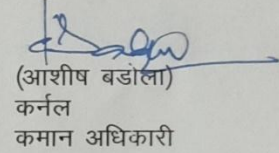 (आशीष बडोला)
कर्नल
कमान अधिकारी